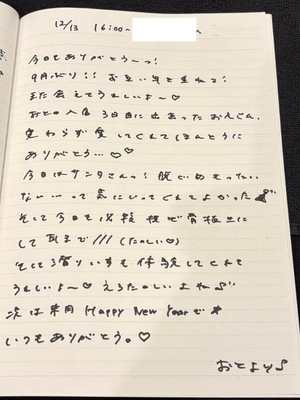 12/13 16:00~
今日もありがとう〜っ!
9月ぶり!! お互い年を重ねて!
また会えてうれしいよ〜♡
おとの入店3日目に出会ったお兄さん
変わらず愛してくれてほんとうに
ありがとう…♡♡
今日はサンタさんっ! 脱ぐ
ない…って気にいってくれてよかった
そして今日も
して 耳まで///(たのしい♡)
そして3 体験してくれて
うれしいよ〜♡ えろたのしいよね
次は来月 Happy New Year で
いつもありがとう。♡
おとより